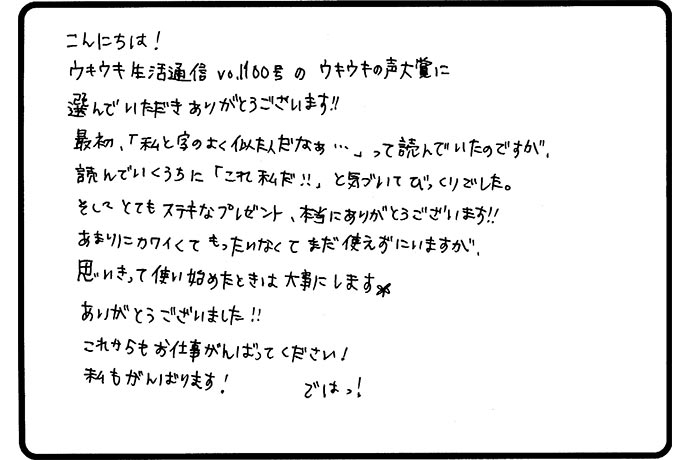 こんにちは!
ウキウキ生活通信 vol100号の ウキウキの声大賞に
選んでいただきありがとうございます!!
最初、「私と字のよく似た人だなぁ…」って読んでいたのですが、
読んでいくうちに「これ私だ!!」と気づいてびっくりでした。
そしてとてもステキなプレゼント、本当にありがとうございます!!
あまりにカワイくてもったいなくてまだ使えずにいますが、
思いきって使い始めたときは大事にします
ありがとうございました!!
これからもお仕事がんばってください!
私もがんばります! ではっ!